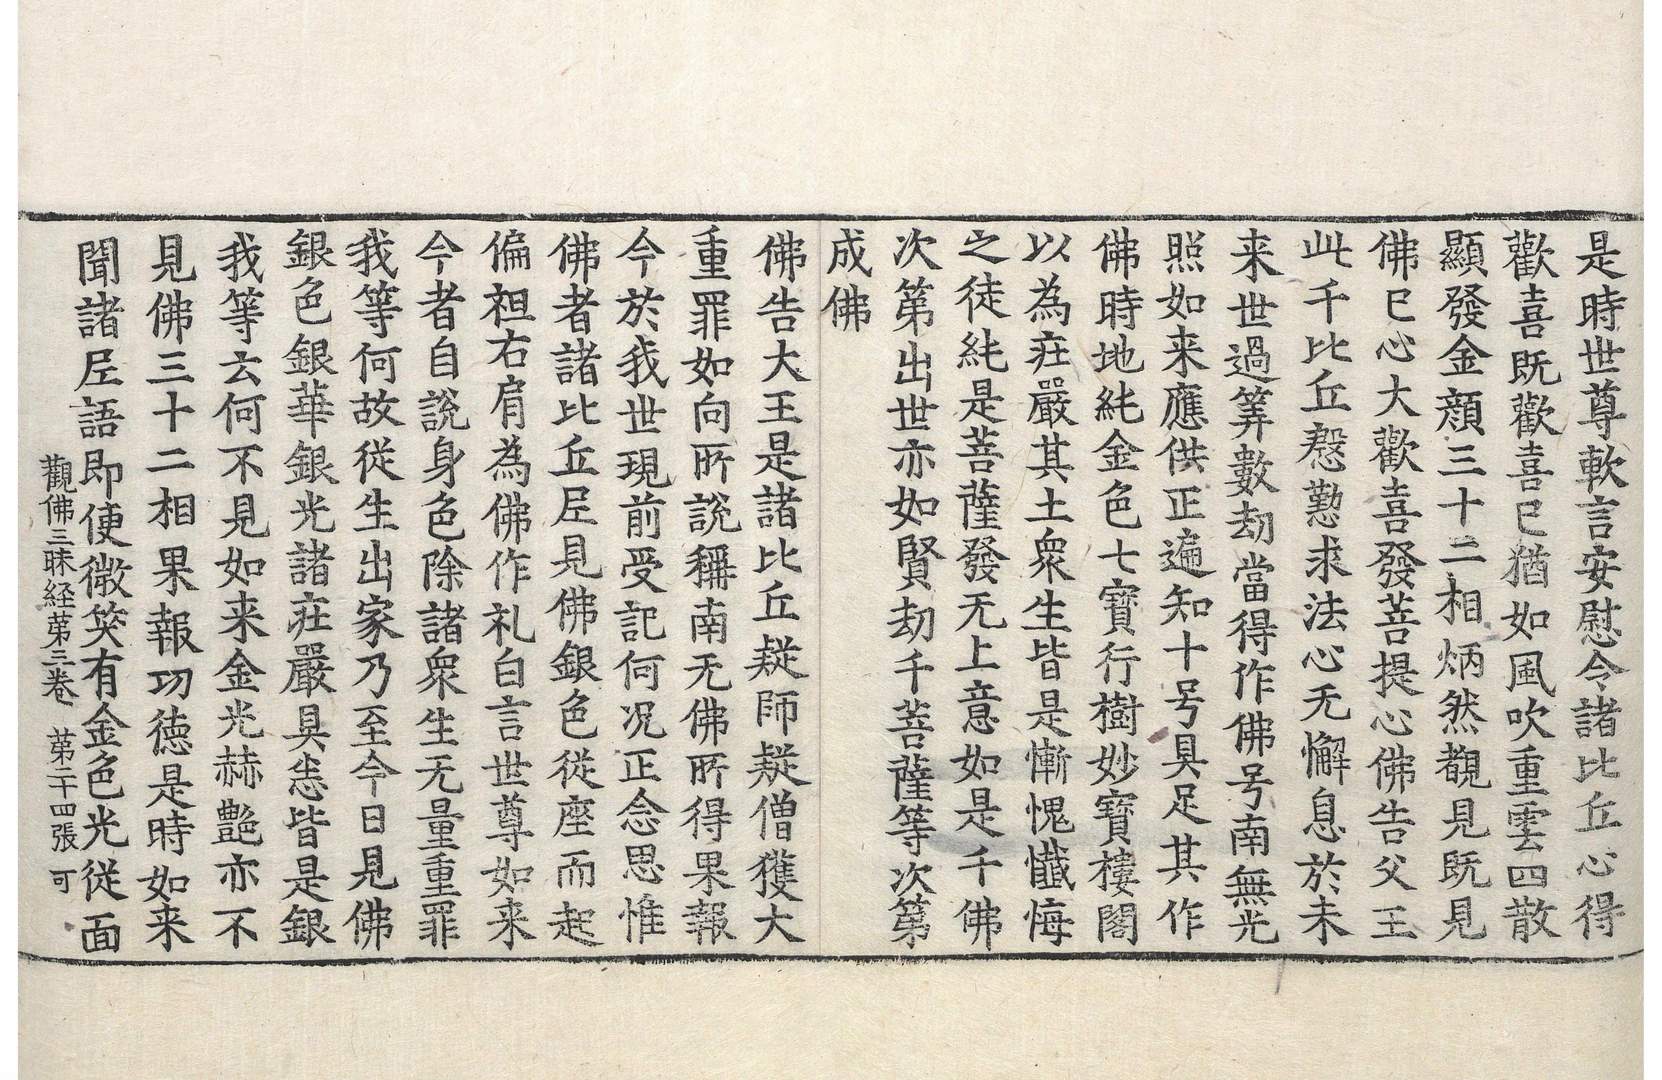 是時世尊軟言安慰令諸比丘心得
歡喜既歡喜已猶如風吹重雲四散
顯發金顔三十二相炳然覩見既見
佛已心大歡喜發菩提心佛告父王
此千比丘慇懃求法心无懈息於未
来世過筭數劫當得作佛号南無光
照如来應供正遍知十号具足其作
佛時地純金色七寶行樹妙寶樓閣
以為莊嚴其土衆生皆是慚愧懺悔
之徒純是菩薩發无上意如是千佛
次第出世亦如賢劫千菩薩等次第
成佛
佛告大王是諸比丘疑師疑僧獲大
重罪如向所說稱南无佛所得果報
今於我世現前受記何况正念思惟
佛者諸比丘尼見佛銀色從座而起
偏袒右肩為佛作礼白言世尊如来
今者自說身色除諸衆生无量重罪
我等何故從生出家乃至今日見佛
銀色銀華銀光諸莊嚴具悉皆是銀
我等云何不見如来金光赫艷亦不
見佛三十二相果報功徳是時如来
聞諸尼語即便微笑有金色光從面
觀佛三昧経第三卷 第二十四張 可